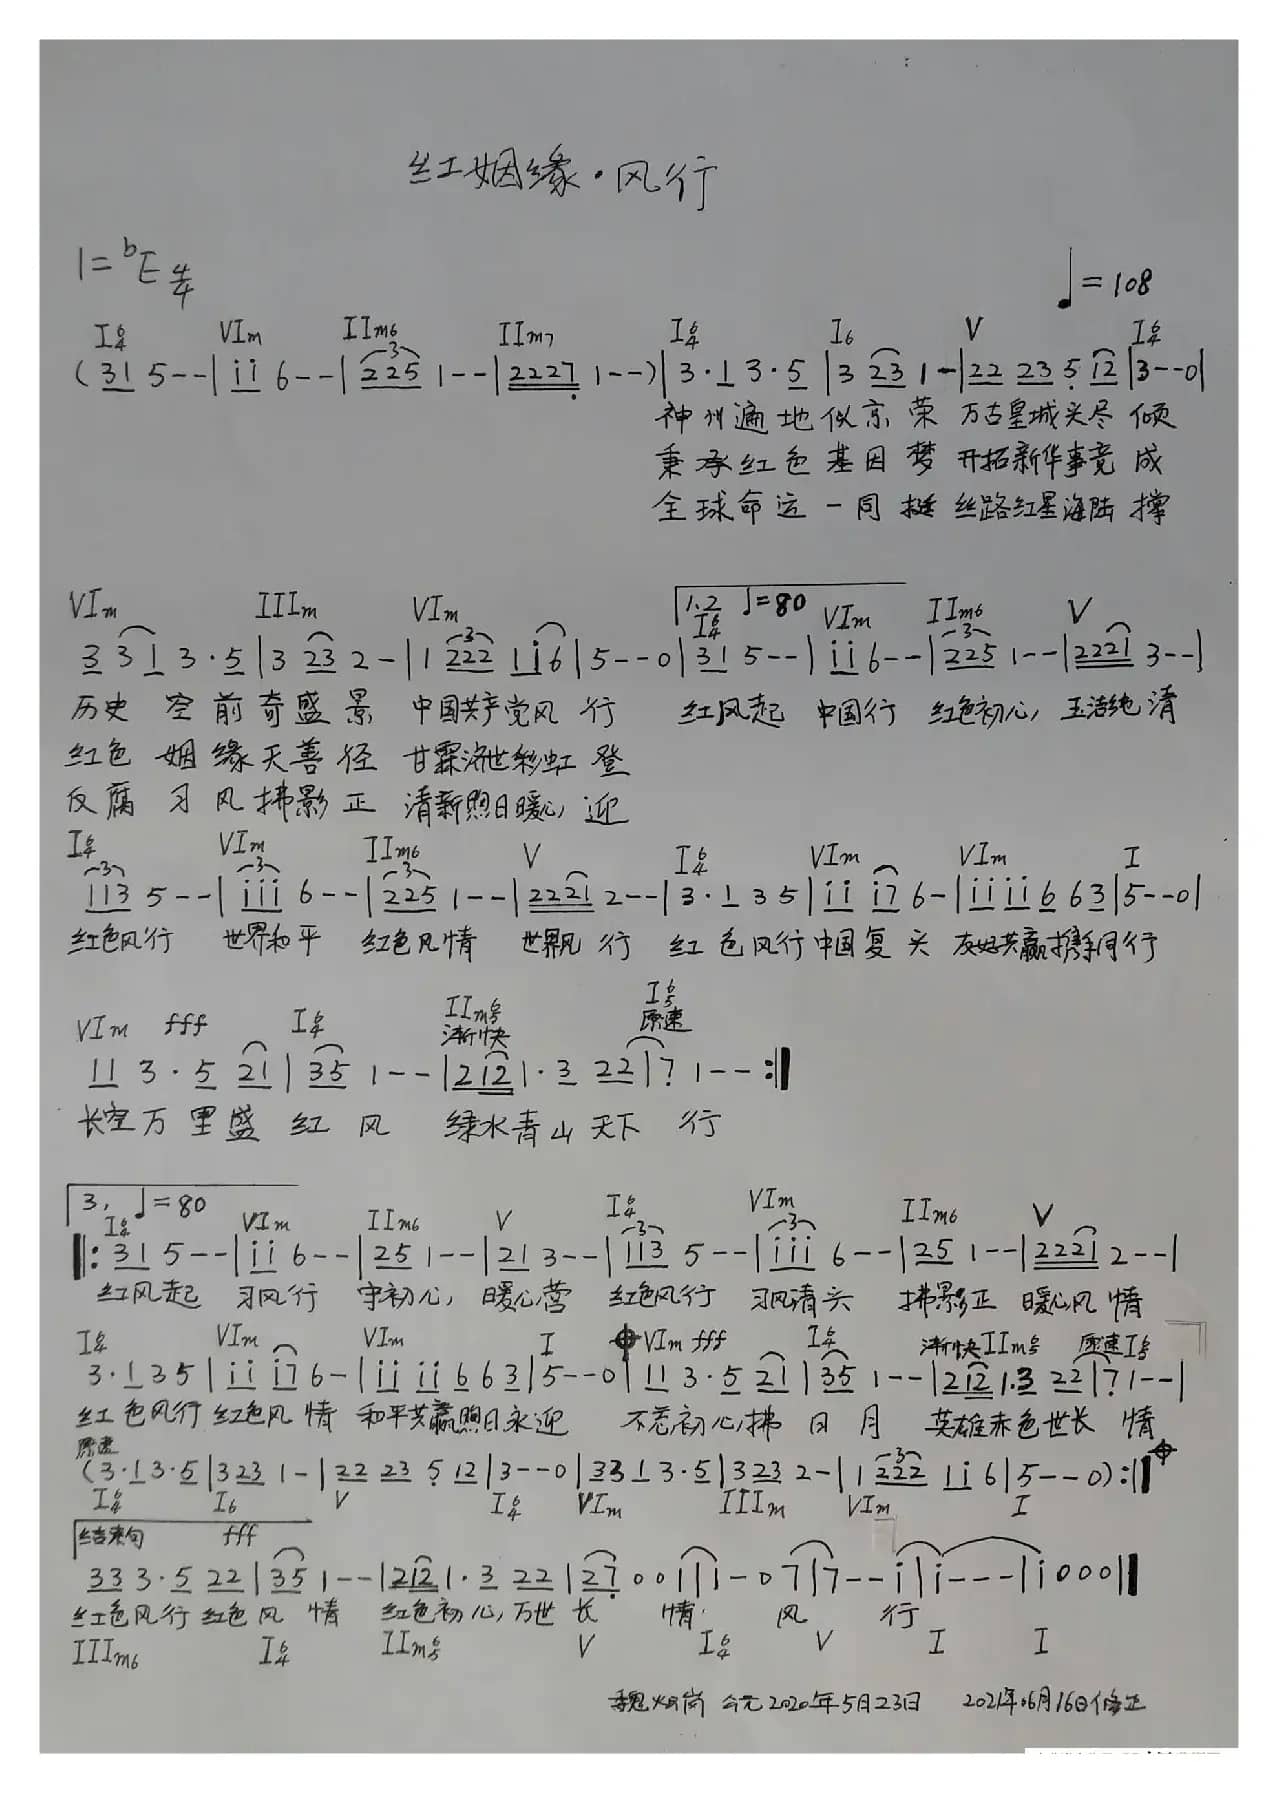 红姻缘·风行
1=bE 4/4
♩=108
I6/4 VIm IIm6 IIm7 I6/4 I6 V I6/4
(31 5--|ii 6--|225 1--|2227 1--)|3·1 3·5|3 23 1-|22 23 5 12|3--0|
神州遍地似京荣 万古皇城关尽倾
秉承红色基因梦 开拓新华事竟成
全球命运一同挺 丝路红星海陆撑
VIm IIIm VIm 1.2 ♩=80 I6/4 VIm IIm6 V
3 31 3·5|3 23 2-|1 222 1i6|5--0|31 5--|ii 6--|225 1--|2221 3--|
历史空前奇盛景 中国共产党风行 红风起 中国行 红色初心, 玉洁纯清
红色姻缘天善径 甘霖济世彩虹登
反腐习风拂影正 清新煦日暖心, 迎
I6/4 VIm IIm6 V I6/4 VIm VIm I
113 5--|iii 6--|225 1--|2221 2--|3·1 35|ii i7 6-|ii ii 6 63|5--0|
红色风行 世界和平 红色风情 世界风行 红色风行中国复兴 友好共赢携手同行
VIm fff I6/4 IIm6/5 渐快 I6/5 原速
11 3·5 21|35 1--|212 1·3 22|7 1--:|
长空万里盛红风 绿水青山天下行
3. ♩=80
I6/4 VIm IIm6 V I6/4 VIm IIm6 V
|:31 5--|ii 6--|25 1--|21 3--|113 5--|iii 6--|25 1--|2221 2--|
红风起 习风行 守初心, 暖心营 红色风行 习风清头 拂影正 暖心风情
I6/4 VIm VIm I VIm fff I6/4 渐快IIm6/5 原速I6/5
3·1 35|ii i7 6-|ii ii 6 63|5--0|11 3·5 21|35 1--|212 1·3 22|7 1--|
红色风行 红色风情 和平共赢煦日永迎 不忘初心,拂日月 英雄赤色世长情
原速
(3·1 3·5|3 23 1-|22 23 5 12|3--0|33 1 3·5|3 23 2-|1 222 1i6|5--0):|
I6/4 I6 V I6/4 VIm IIIm VIm I
结束句 fff
33 3·5 22|35 1--|212 1·3 22|27 0 0 1|1-0 7|7--i|i---|i 0 0 0|
红色风行红色风情 红色初心,万世长情 风行
IIIm6 I6/4 IIm6/5 V I6/4 V I I
公元2020年5月23日 2021年06月16日修正